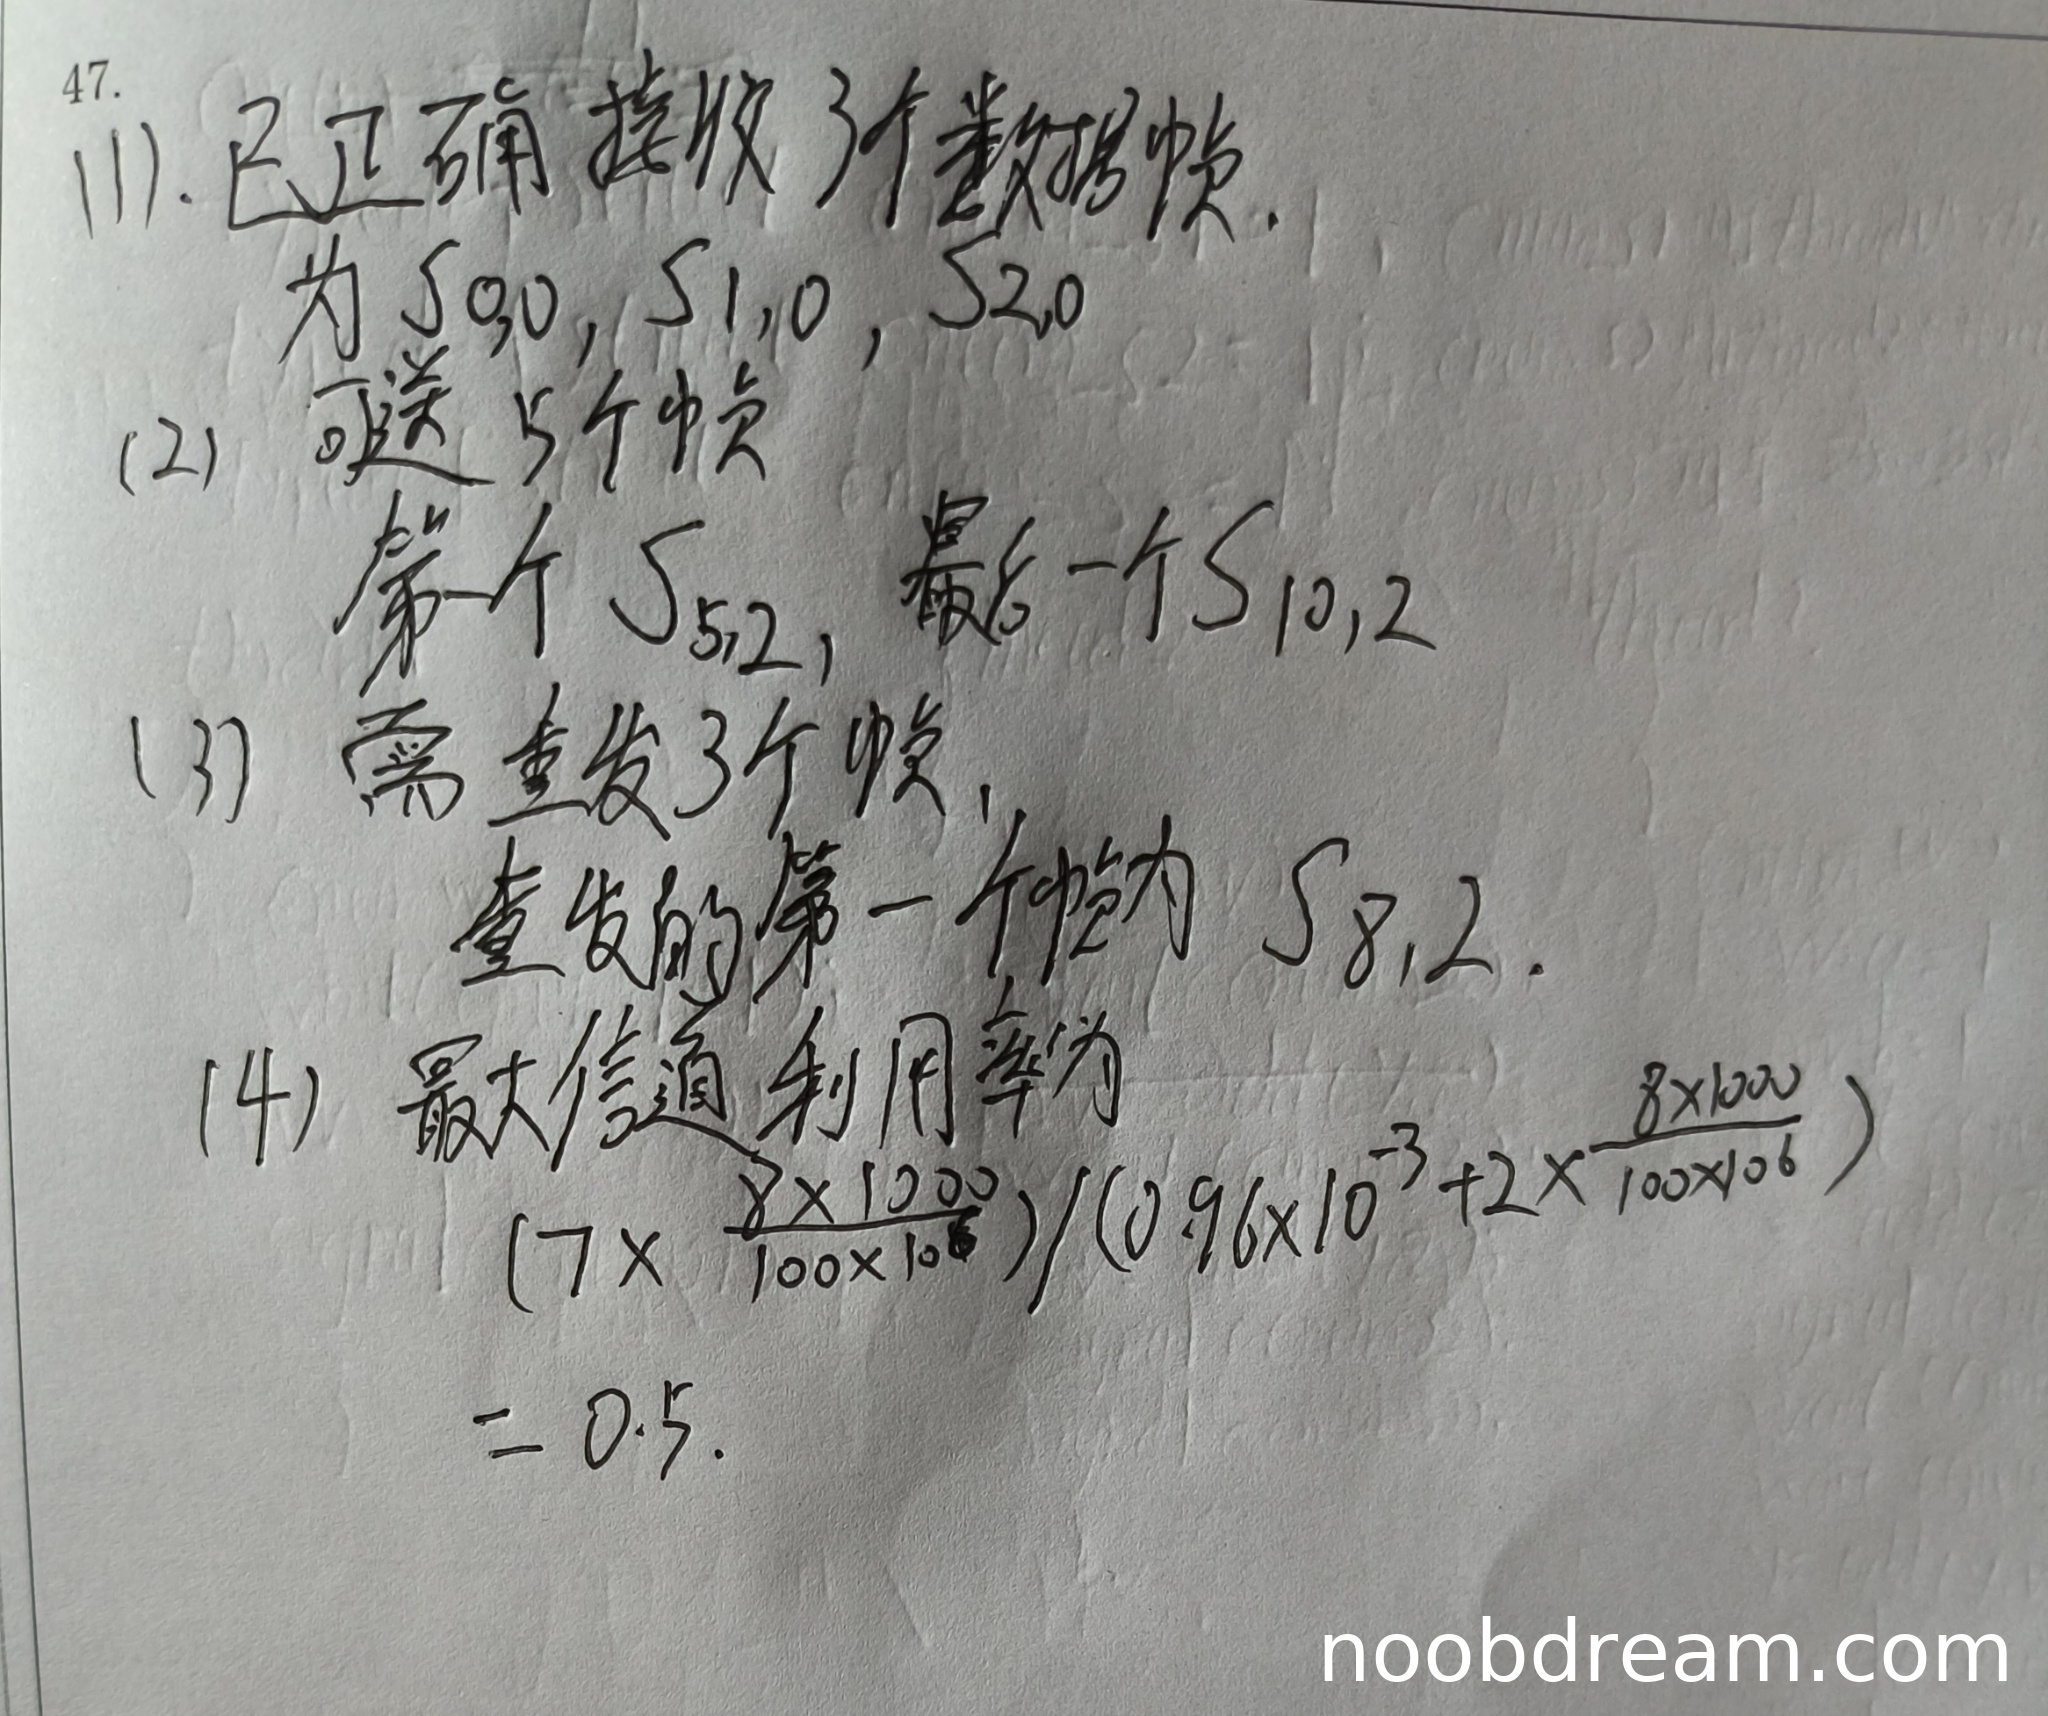 47.
(1). 已正确接收3个数据帧.
为 S0,0, S1,0, S2,0
(2) 可送5个帧
第一个 S5,2, 最后一个S10,2
(3) 需重发3个帧,
重发的第一个帧为 S8,2.
(4) 最大信道利用率为
(7 × 8×1000/100×10^6)/(0.96×10^-3+2×8×1000/100×10^6)
= 0.5.
noobdream.com